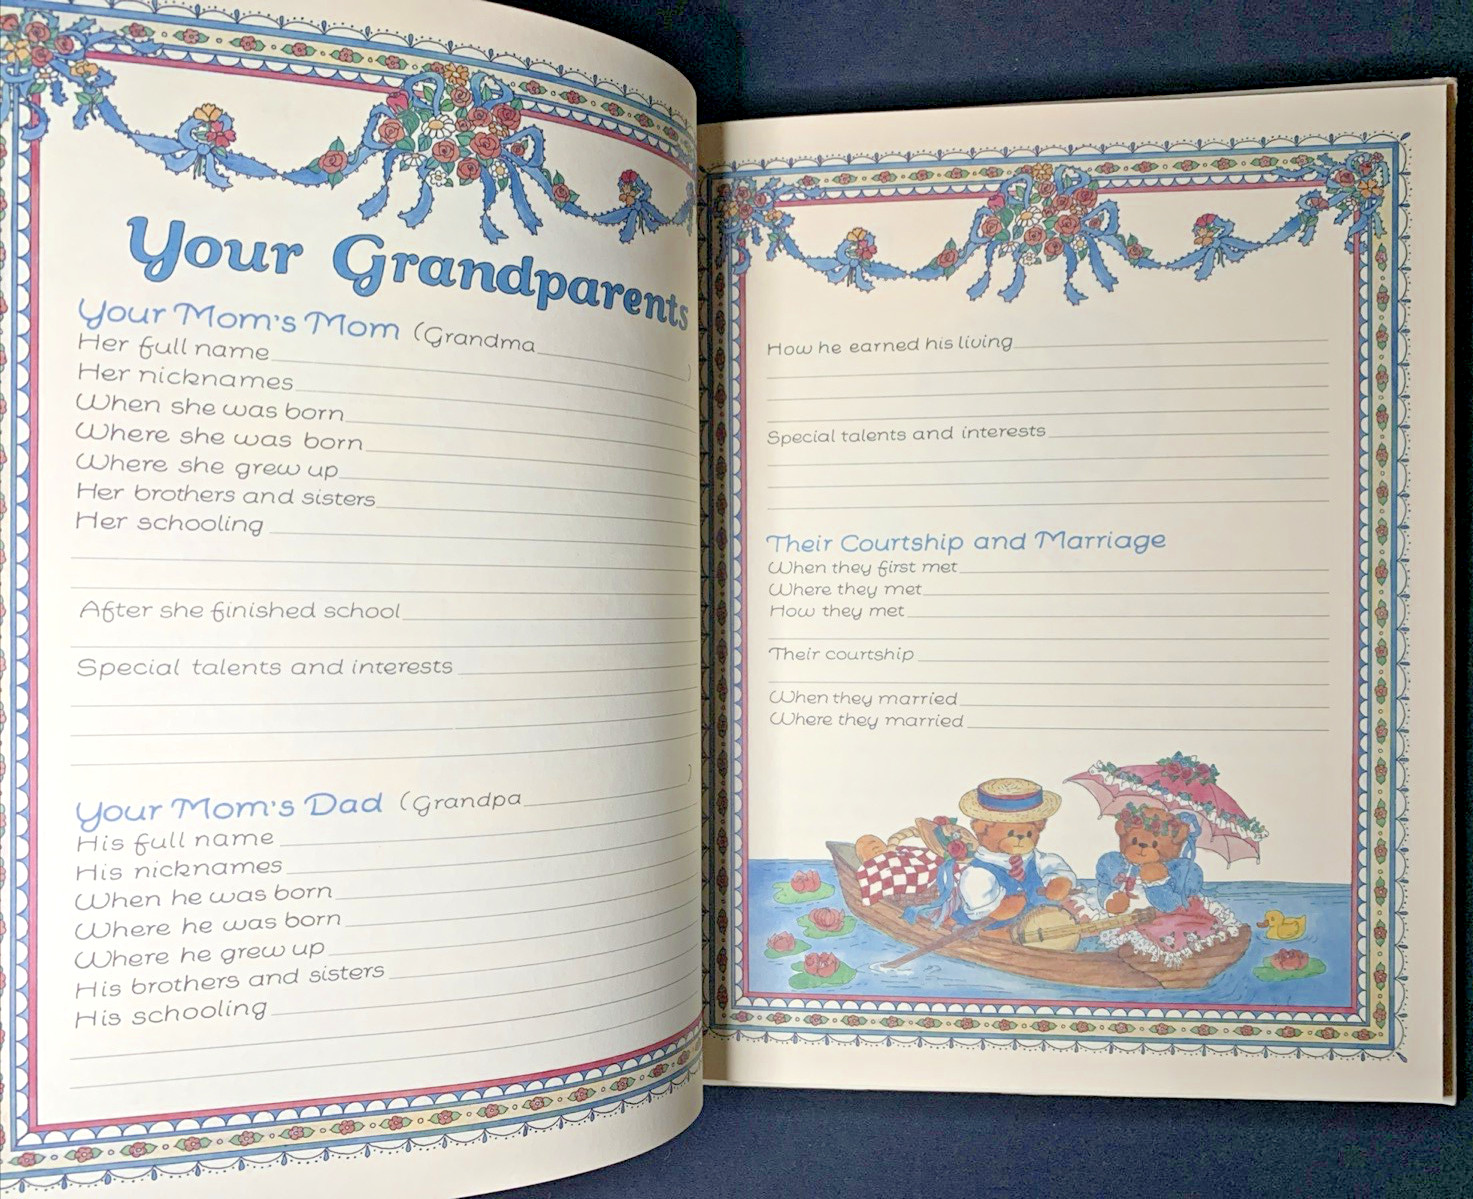 Your Grandparents
Your Mom's Mom (Grandma )
Her full name
Her nicknames
When she was born
Where she was born
Where she grew up
Her brothers and sisters
Her schooling
After she finished school
Special talents and interests
Your Mom's Dad (Grandpa )
His full name
His nicknames
When he was born
Where he was born
Where he grew up
His brothers and sisters
His schooling
How he earned his living
Special talents and interests
Their Courtship and Marriage
When they first met
Where they met
How they met
Their courtship
When they married
Where they married